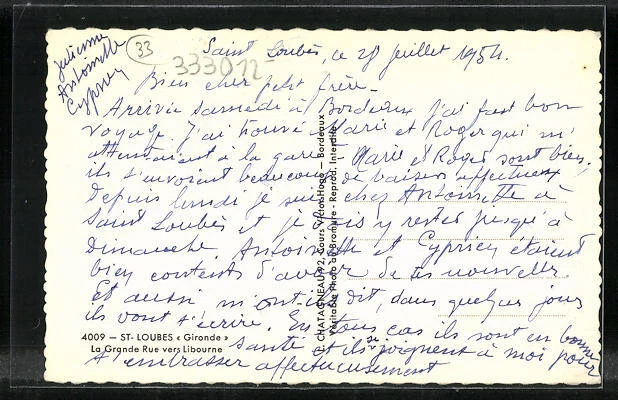 Julienne
Antoinette
Cyprien
33
333012
Saint Loubès, ce 28 juillet 1954.
Bien cher petit frère -
Arrivée samedi à Bordeaux j'ai fait bon
voyage. J'ai trouvé Marie et Roger qui m'
attendaient à la gare - Marie et Roger sont bien,
ils t'envoient beaucoup de baisers affectueux
Depuis lundi je suis chez Antoinette à
Saint Loubès et je vais y rester jusqu'à
Dimanche. Antoinette et Cyprien étaient
bien contents d'avoir de tes nouvelles
Et aussi m'ont dit, dans quelques jours
ils vont t'écrire. En tous cas ils sont en bonne
santé et ils se joignent à moi pour
t'embrasser affectueusement
4009 - ST- LOUBES « Gironde »
La Grande Rue vers Libourne
CHATAGNEAU, 92, Cours Victor Hugo - Bordeaux
Véritable Photo au Bromure - Reprod. Interdite